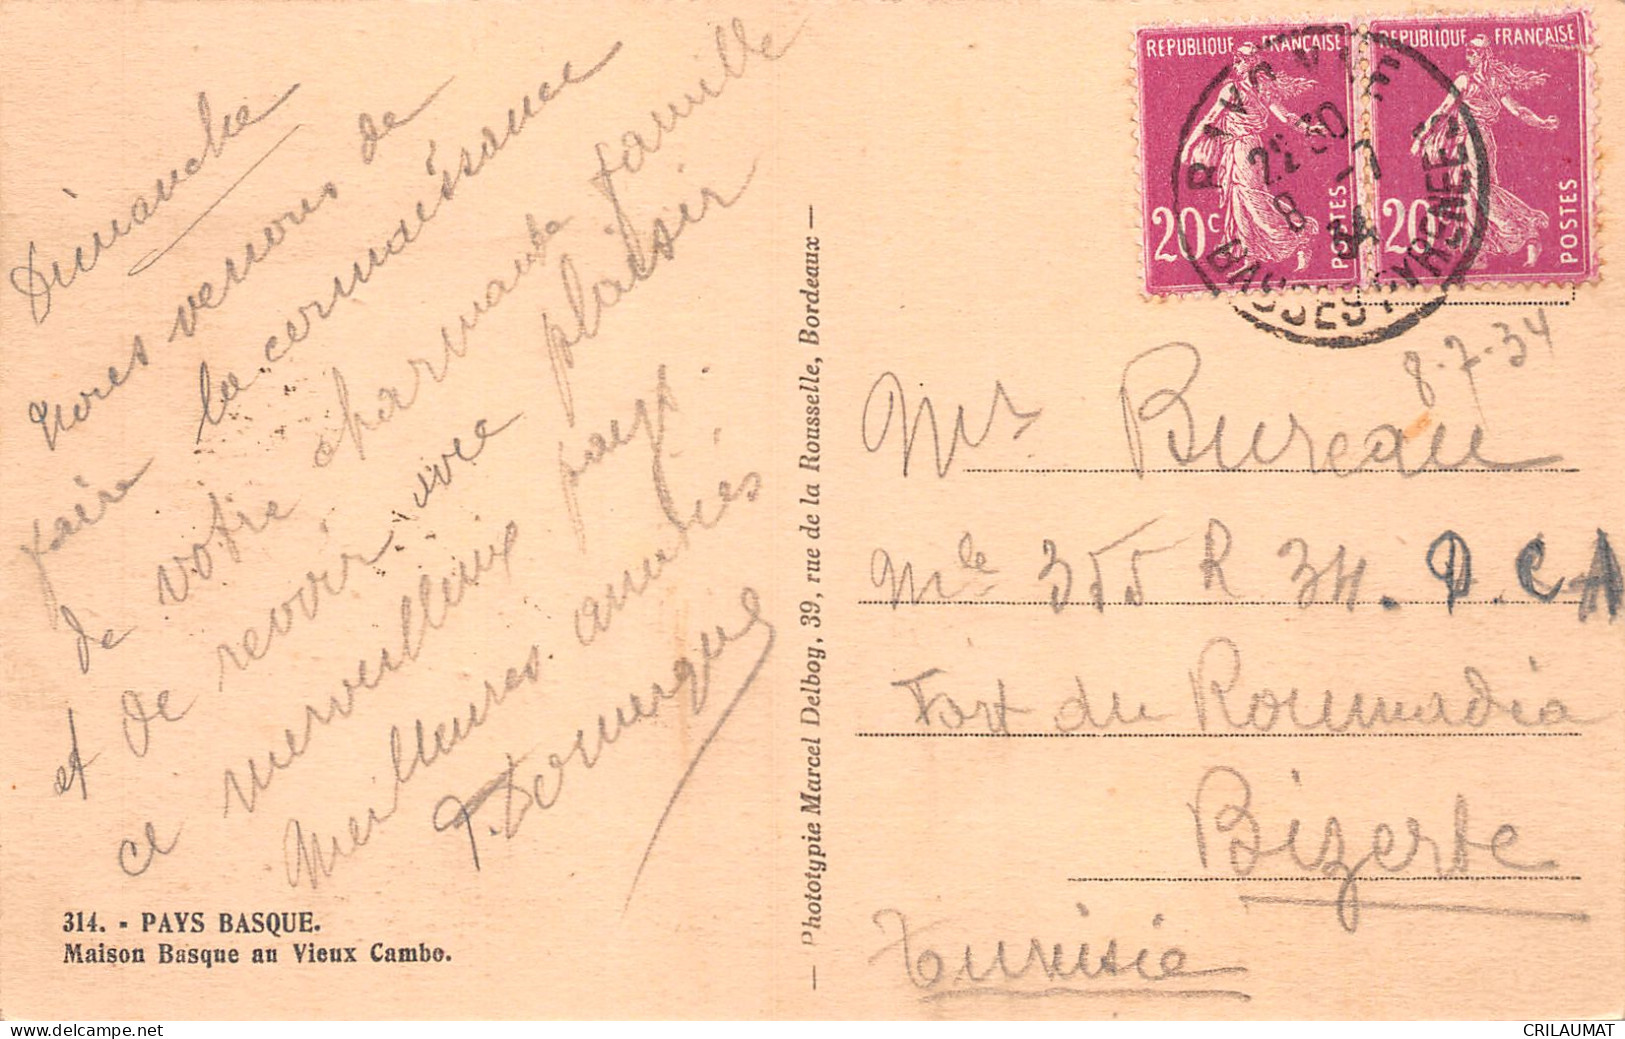 Dimanche
Nous venons de
faire la connaissance
de votre charmante famille
et de revoir avec plaisir
ce merveilleux pays.
Meilleures amitiés
314. - PAYS BASQUE.
Maison Basque au Vieux Cambo.
— Phototypie Marcel Delboy, 39, rue de la Rousselle, Bordeaux —
REPUBLIQUE FRANÇAISE
20c POSTES
REPUBLIQUE FRANÇAISE
20c POSTES
BASSES-PYRENEES
8 -7
34
8-7-34
Mr Bureau
Mle 355 R 34. D.C.A
Fort du Roumadia
Bizerte
Tunisie
delcampe.net
CRILAUMAT